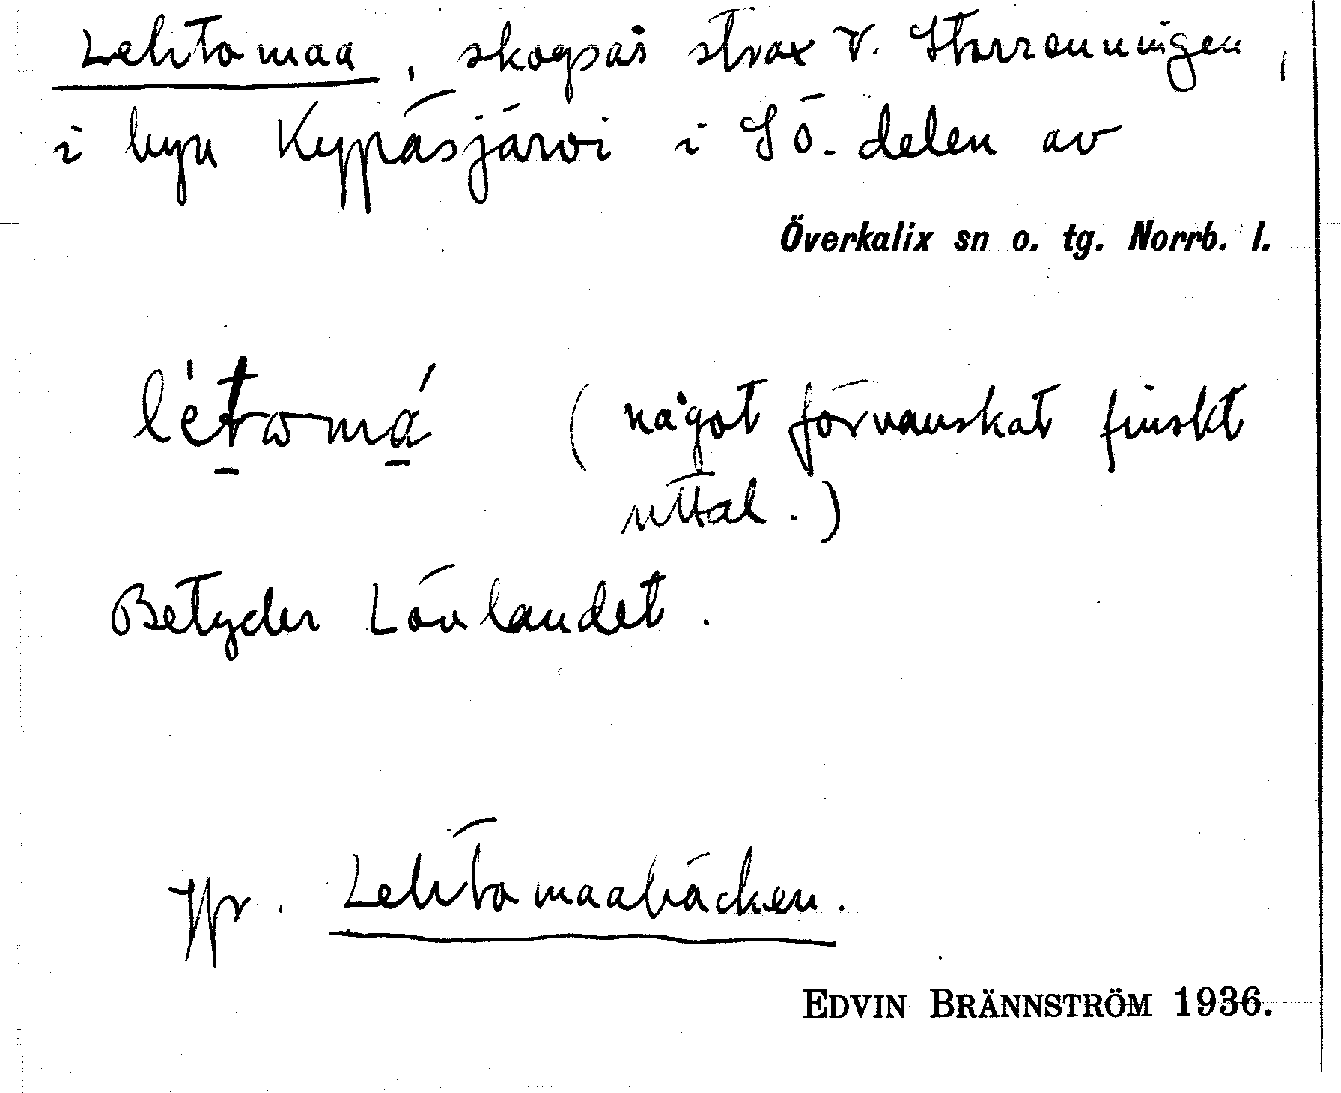 Lehtomaa, skogsås strax V. Storrönningen,
i byn Kypäsjärvi i SÖ. delen av
Överkalix sn o. tg. Norrb. l.
létomá (något förvanskat finskt
uttal.)
Betyder Lövlandet.
Jfr. Lehtomaabäcken.
EDVIN BRÄNNSTRÖM 1936.